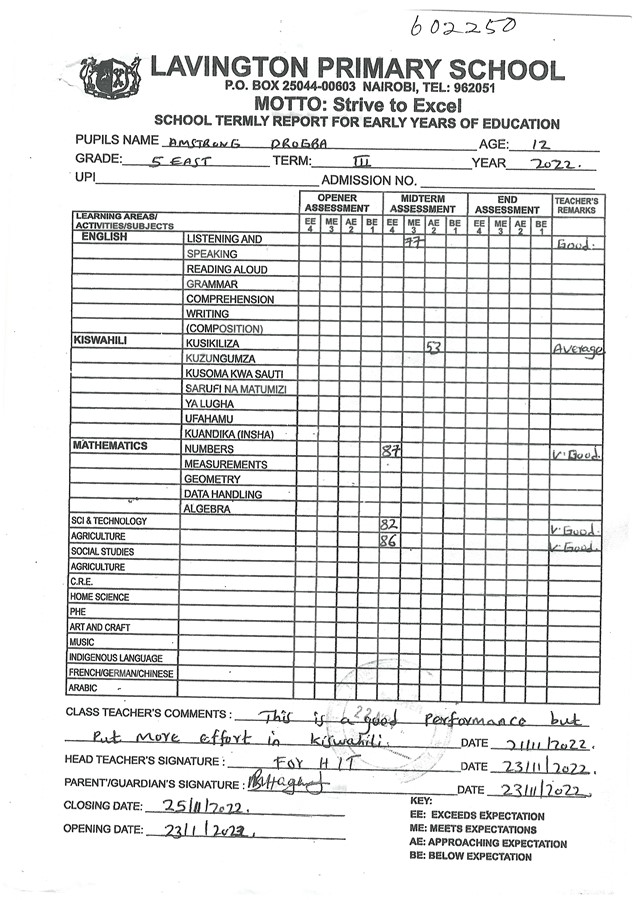 602250
LAVINGTON PRIMARY SCHOOL
P.O. BOX 25044-00603 NAIROBI, TEL: 962051
MOTTO: Strive to Excel
SCHOOL TERMLY REPORT FOR EARLY YEARS OF EDUCATION
PUPILS NAME AMSTRONG DROGBA AGE: 12
GRADE: 5 EAST TERM: III YEAR 2022.
UPI ADMISSION NO.
OPENER ASSESSMENT MIDTERM ASSESSMENT END ASSESSMENT TEACHER'S REMARKS
LEARNING AREAS/ ACTIVITIES/SUBJECTS EE 4 ME 3 AE 2 BE 1 EE 4 ME 3 AE 2 BE 1 EE 4 ME 3 AE 2 BE 1
ENGLISH LISTENING AND 77 Good.
SPEAKING
READING ALOUD
GRAMMAR
COMPREHENSION
WRITING
(COMPOSITION)
KISWAHILI KUSIKILIZA 53 Average
KUZUNGUMZA
KUSOMA KWA SAUTI
SARUFI NA MATUMIZI
YA LUGHA
UFAHAMU
KUANDIKA (INSHA)
MATHEMATICS NUMBERS 87 V.Good.
MEASUREMENTS
GEOMETRY
DATA HANDLING
ALGEBRA
SCI & TECHNOLOGY 82 V.Good.
AGRICULTURE 86 V.Good.
SOCIAL STUDIES
AGRICULTURE
C.R.E.
HOME SCIENCE
PHE
ART AND CRAFT
MUSIC
INDIGENOUS LANGUAGE
FRENCH/GERMAN/CHINESE
ARABIC
CLASS TEACHER'S COMMENTS : This is a good performance but
Put more effort in kiswahili. DATE 21/11/2022.
HEAD TEACHER'S SIGNATURE : FOR H/T DATE 23/11/2022.
PARENT'/GUARDIAN'S SIGNATURE : DATE 23/11/2022
CLOSING DATE: 25/11/2022.
OPENING DATE: 23/1/2022.
KEY:
EE: EXCEEDS EXPECTATION
ME: MEETS EXPECTATIONS
AE: APPROACHING EXPECTATION
BE: BELOW EXPECTATION